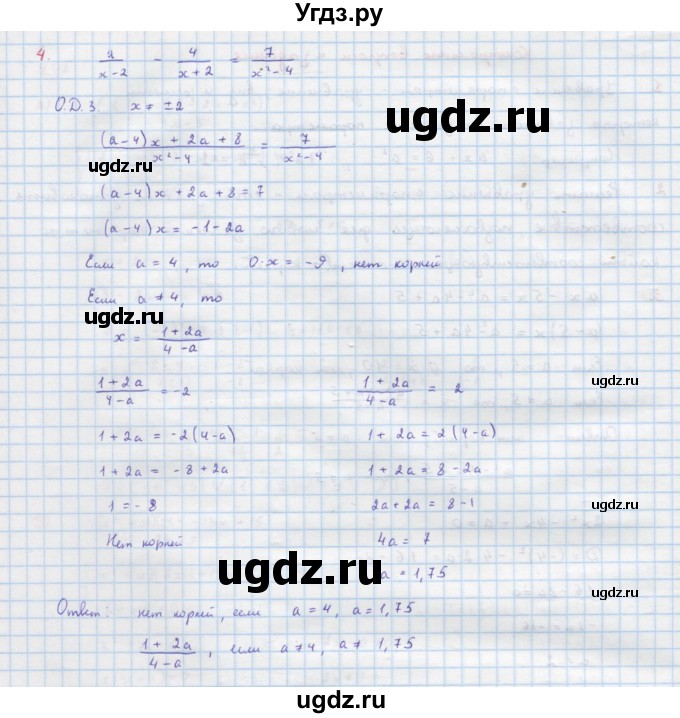 Угдз.ру
4. a/(x-2) - 4/(x+2) = 7/(x²-4)
О.Д.З. x ≠ ±2
((a-4)x + 2a + 8)/(x²-4) = 7/(x²-4)
ugdz.ru ugdz.ru
(a-4)x + 2a + 8 = 7
(a-4)x = -1-2a
Если a = 4, то 0·x = -9, нет корней
Если a ≠ 4, то
ugdz.ru
x = (1+2a)/(4-a)
ugdz.ru
(1+2a)/(4-a) = -2 (1+2a)/(4-a) = 2
1+2a = -2(4-a) 1+2a = 2(4-a)
1+2a = -8+2a 1+2a = 8-2a
1 = -8 2a+2a = 8-1
ugdz.ru
Нет корней 4a = 7
ugdz.ru
a = 1,75
Ответ: нет корней, если a = 4, a = 1,75
(1+2a)/(4-a), если a ≠ 4, a ≠ 1,75
ugdz.ru
ugdz.ru